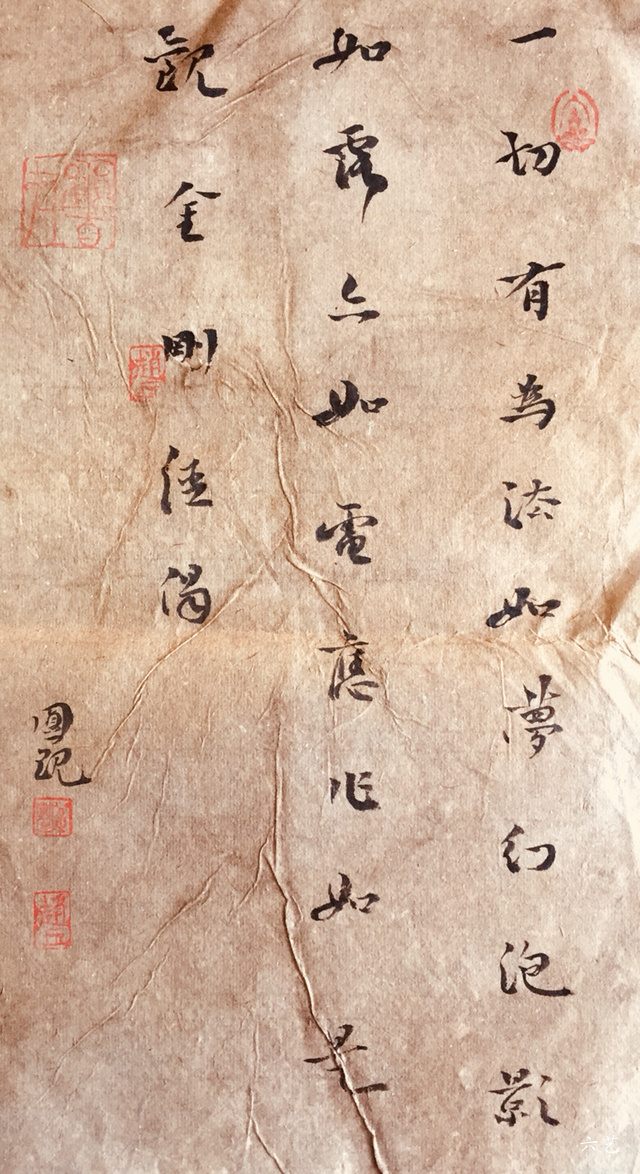 一切有為法如夢幻泡影
如露亦如電應作如是
觀金剛經偈
圓觀
六艺